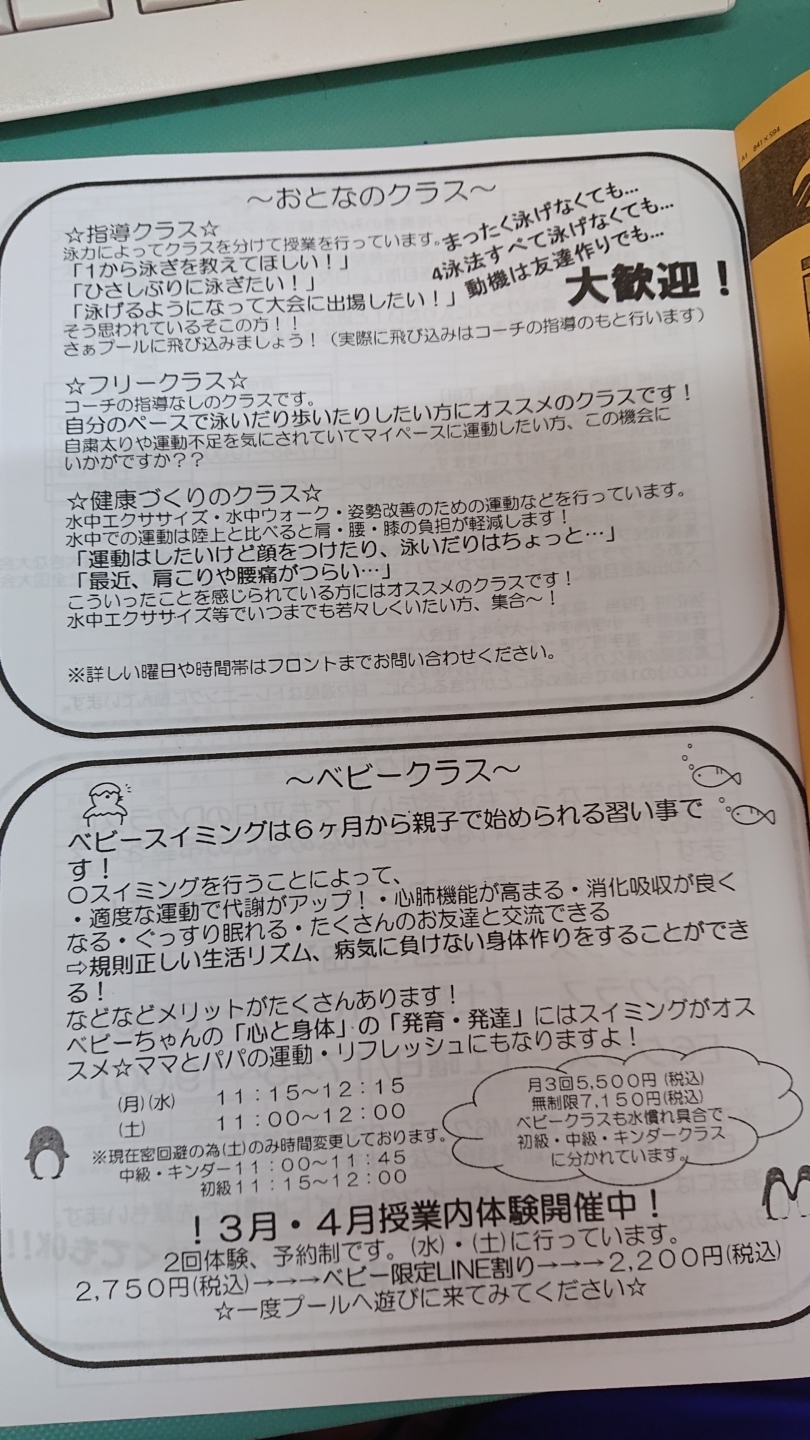 A1 841×594
～おとなのクラス～
☆指導クラス☆
泳力によってクラスを分けて授業を行っています。
「1から泳ぎを教えてほしい！」
「ひさしぶりに泳ぎたい！」
「泳げるようになって大会に出場したい！」
まったく泳げなくても…
4泳法すべて泳げなくても…
動機は友達作りでも…
大歓迎！
そう思われているそこの方！！
さぁプールに飛び込みましょう！（実際に飛び込みはコーチの指導のもと行います）
☆フリークラス☆
コーチの指導なしのクラスです。
自分のペースで泳いだり歩いたりしたい方にオススメのクラスです！
自粛太りや運動不足を気にされていてマイペースに運動したい方、この機会に
いかがですか？？
☆健康づくりのクラス☆
水中エクササイズ・水中ウォーク・姿勢改善のための運動などを行っています。
水中での運動は陸上と比べると肩・腰・膝の負担が軽減します！
「運動はしたいけど顔をつけたり、泳いだりはちょっと…」
「最近、肩こりや腰痛がつらい…」
こういったことを感じられている方にはオススメのクラスです！
水中エクササイズ等でいつまでも若々しくいたい方、集合～！
※詳しい曜日や時間帯はフロントまでお問い合わせください。
～ベビークラス～
ベビースイミングは６ヶ月から親子で始められる習い事で
す！
〇スイミングを行うことによって、
・適度な運動で代謝がアップ！・心肺機能が高まる・消化吸収が良く
なる・ぐっすり眠れる・たくさんのお友達と交流できる
⇨規則正しい生活リズム、病気に負けない身体作りをすることができ
る！
などなどメリットがたくさんあります！
ベビーちゃんの「心と身体」の「発育・発達」にはスイミングがオス
スメ☆ママとパパの運動・リフレッシュにもなりますよ！
(月)(水) １１：１５～１２：１５
(土) １１：００～１２：００
※現在密回避の為(土)のみ時間変更しております。
中級・キンダー１１：００～１１：４５
初級１１：１５～１２：００
月３回5,500円（税込）
無制限7,150円(税込)
ベビークラスも水慣れ具合で
初級・中級・キンダークラス
に分かれています。
！３月・４月授業内体験開催中！
2回体験、予約制です。(水)・(土)に行っています。
2,７５０円(税込)→→→ベビー限定LINE割り→→→２,２００円(税込)
☆一度プールへ遊びに来てみてください☆